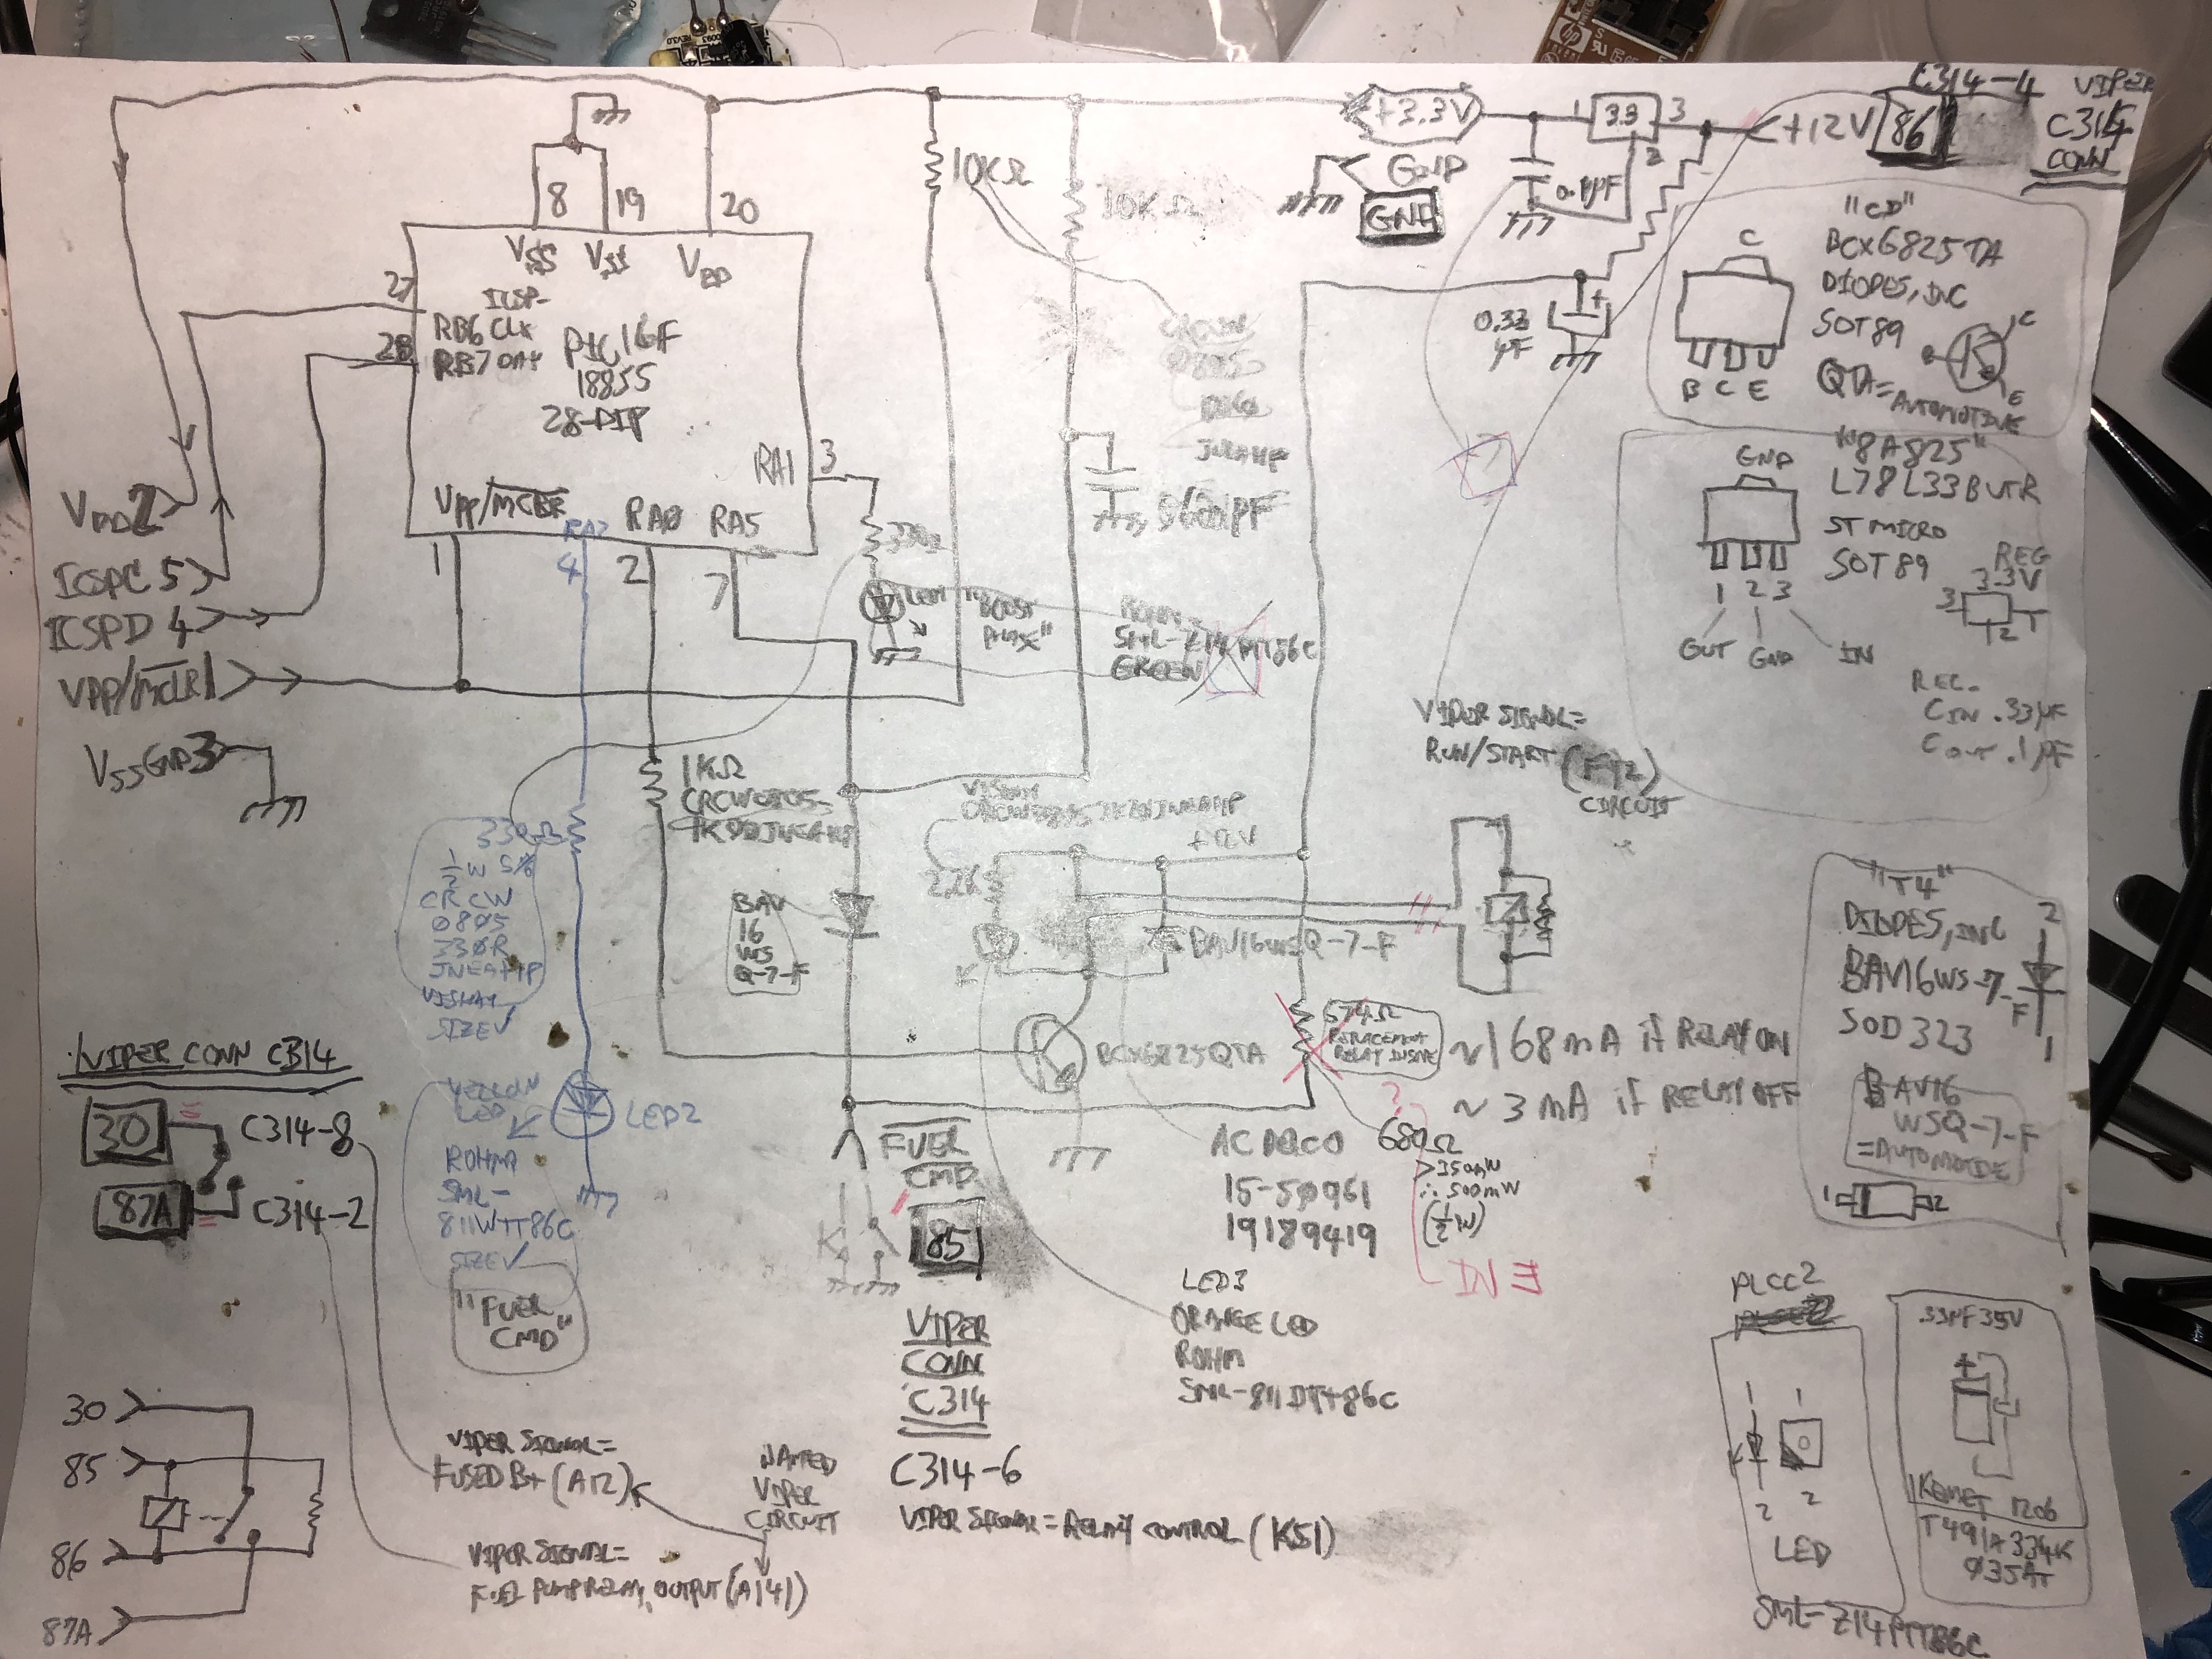 C314-4
VIPER
C314
CONN
+3.3V
1
3.3
3
2
+12V
86
GND
0.1µF
8
19
20
VSS
VSS
VDD
10KΩ
10KΩ
27
28
ICSP-
RB6 CLK
RB7 DAT
PIC16F
18855
28-DIP
RA1
3
VPP/MCLR
RA2
RA0
RA5
1
4
2
7
330Ω
LED1
"BOOST
ROHM
SML-Z14PTT86C
GREEN
CRCW
0805
JNEAHP
0.33
µF
"CD"
BCX6825TA
DIODES, INC
SOT89
QTA=
AUTOMOTIVE
C
B C E
C
B
E
"8A825"
L78L33BUTR
ST MICRO
SOT89
GND
1 2 3
OUT
GND
IN
REG
3.3V
3
1
2
REC.
CIN .33µF
COUT .1µF
VDD 2
ICSPC 5
ICSPD 4
VPP/MCLR 1
VSS GND 3
VIPER SIGNAL=
RUN/START (F12)
CIRCUIT
1KΩ
CRCW0805-
1K00JNEAHP
VISHAY
+12V
2.2K
330Ω
1/2 W 5%
CRCW
0805
330R
JNEAHP
VISHAY
SIZE√
BAV
16
WS
Q-7-F
BAV16WSQ-7-F
BCX6825QTA
574Ω
REPLACEMENT
RELAY INSIDE
~168mA if RELAY ON
~3mA if RELAY OFF
680Ω
>350mW
∴ 500mW
(1/2W)
?
"T4"
DIODES, INC
BAV16WS-7-
F
SOD323
2
1
BAV16
WSQ-7-F
=AUTOMOTIVE
1
2
VIPER CONN C314
30
C314-8
87A
C314-2
YELLOW
LED
LED2
ROHM
SML-
811WTT86C
SIZE√
"FUEL
CMD"
FUEL
CMD
85
VIPER
CONN
C314
C314-6
VIPER SIGNAL=RELAY CONTROL (K51)
AC DELCO
15-50961
19189419
LED3
ORANGE LED
ROHM
SML-811DTT86C
30
85
86
87A
VIPER SIGNAL=
FUSED B+ (A12)
NAMED
VIPER
CIRCUIT
VIPER SIGNAL=
FUEL PUMP RELAY OUTPUT (A141)
PLCC2
1 1
2 2
LED
SML-Z14PTT86C
.33µF35V
+
KEMET 1206
T491A334K
035AT